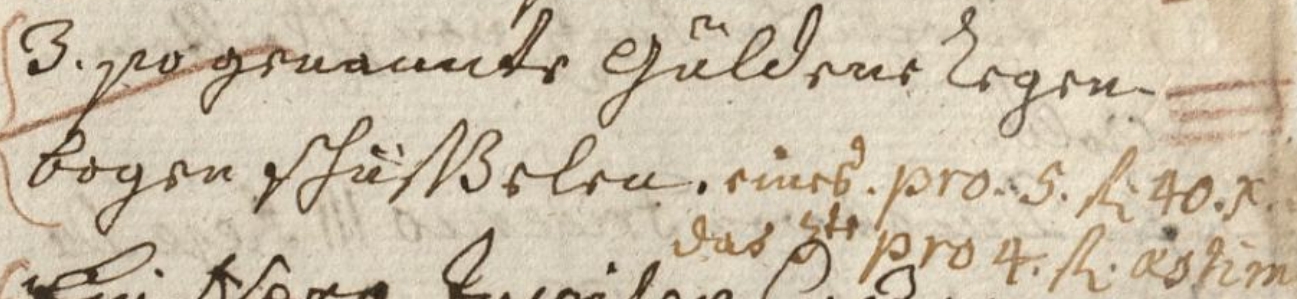 3. so genannte Güldene Regen-
bogen schüsßelen. eines. pro. 5. fl. 40. x.
das 2te pro 4. fl. æstim